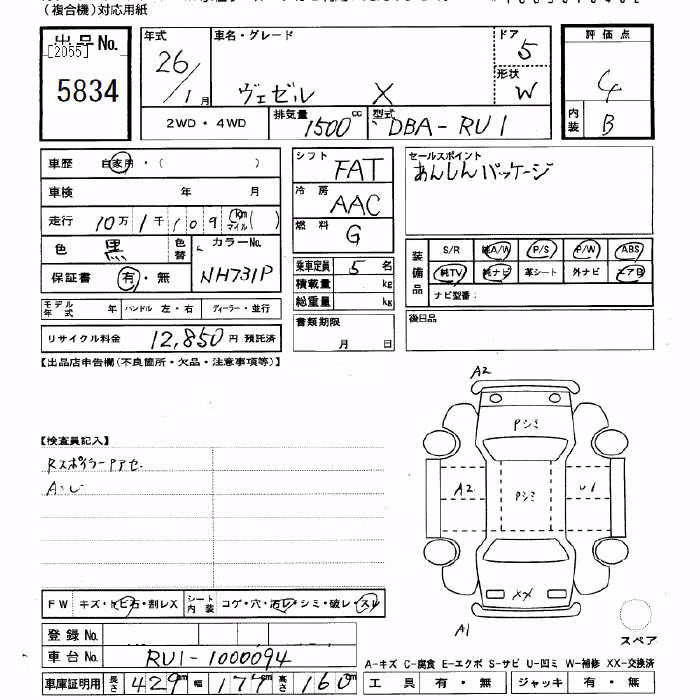 (複合機)対応用紙
出品No.
[2055]
5834
年式 車名・グレード ドア 5
26/1月 ヴェゼル X 形状 W
2WD・4WD 排気量 1500cc 型式 DBA-RU1
評価点
4
内装 B
車歴 自家用・( )
車検 年 月
走行 10万1千109 km マイル( )
色 黒 色替 カラーNo. NH731P
保証書 有・無
モデル年式 年 ハンドル 左・右 ディーラー・並行
リサイクル料金 12,850円 預託済
シフト FAT
冷房 AAC
燃料 G
乗車定員 5名
積載量 kg
総重量 kg
書類期限
月 日
セールスポイント
あんしんパッケージ
装備品 S/R 純A/W P/S P/W ABS
純TV 純ナビ 革シート 外ナビ エアB
ナビ型番:
後日品
【出品店申告欄(不良箇所・欠品・注意事項等)】
【検査員記入】
RスポイラーPアセ
FW キズ・トビ石・割レX シート内装 コゲ・穴・汚レ・シミ・破レ・スレ
登録No.
車台No. RU1-1000094
車庫証明用 長さ 429cm 幅 177cm 高さ 160cm
A2
Pシミ
A2 Pシミ U1
XX
A1
スペア
A-キズ C-腐食 E-エクボ S-サビ U-凹ミ W-補修 XX-交換済
工具 有・無 ジャッキ 有・無